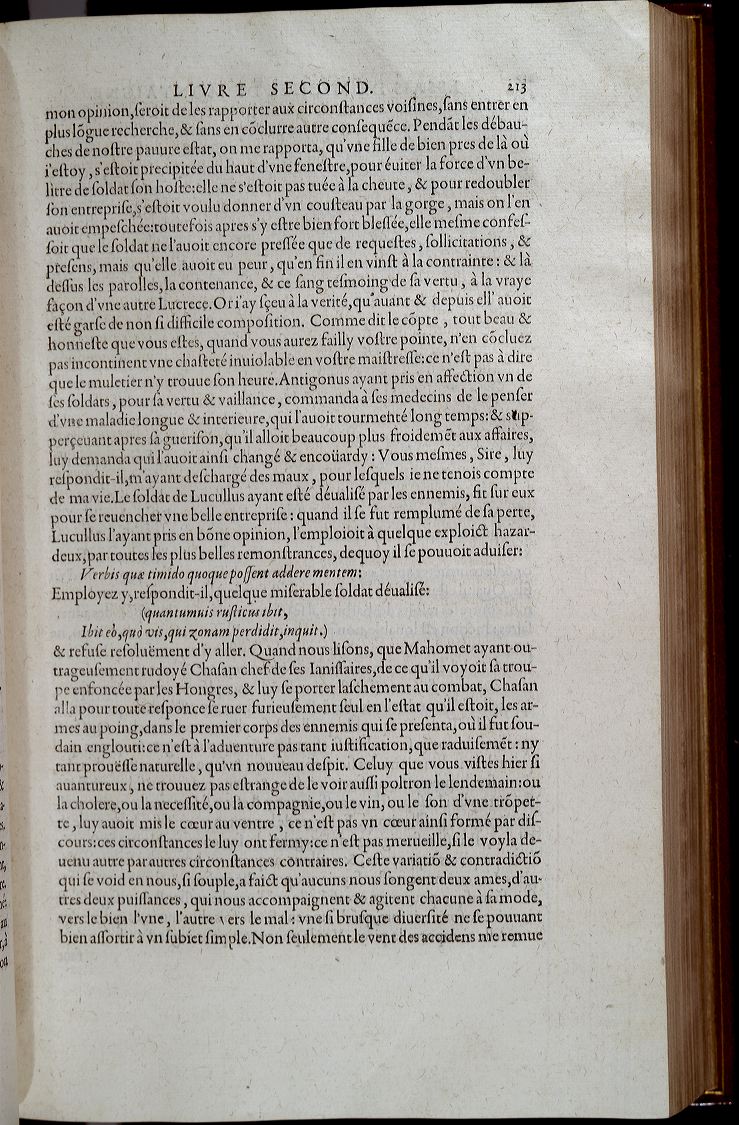 LIVRE SECOND. 213
mon opinion,ſeroit de les rapporter aux circonſtances voiſines,ſans entrer en
plus lõgue recherche,& ſans en cõclurre autre conſequẽce. Pendãt les débau-
ches de noſtre pauure eſtat, on me rapporta, qu'vne fille de bien pres de là où
i'eſtoy , s'eſtoit precipitée du haut d'vne feneſtre,pour éuiter la force d'vn be-
litre de ſoldat ſon hoſte:elle ne s'eſtoit pas tuée à la cheute , & pour redoubler
ſon entrepriſe,s'eſtoit voulu donner d'vn couſteau par la gorge , mais on l'en
auoit empeſchée:toutefois apres s'y eſtre bien fort bleſſée,elle meſme confeſ-
ſoit que le ſoldat ne l'auoit encore preſſée que de requeſtes , ſollicitations , &
preſens, mais qu'elle auoit eu peur , qu'en fin il en vinſt à la contrainte : & là
deſſus les parolles,la contenance, & ce ſang teſmoing de ſa vertu , à la vraye
façon d'vne autre Lucrece.Or i'ay ſçeu à la verité,qu'auant & depuis ell' auoit
eſté garſe de non ſi difficile compoſition. Comme dit le cõpte , tout beau &
honneſte que vous eſtes, quand vous aurez failly voſtre pointe, n'en cõcluez
pas incontinent vne chaſteté inuiolable en voſtre maiſtreſſe:ce n'eſt pas à dire
que le muletier n'y trouue ſon heure.Antigonus ayant pris en affection vn de
ſes ſoldats , pour ſa vertu & vaillance , commanda à ſes medecins de le penſer
d'vne maladie longue & interieure,qui l'auoit tourmenté long temps:& s'ap-
perçeuant apres ſa gueriſon,qu'il alloit beaucoup plus froidemẽt aux affaires,
luy demanda qui l'auoit ainſi changé & encoüardy : Vous meſmes , Sire , luy
reſpondit-il,m'ayant deſchargé des maux , pour leſquels ie ne tenois compte
de ma vie.Le ſoldat de Lucullus ayant eſté déualiſé par les ennemis, fit ſur eux
pour ſe reuencher vne belle entrepriſe : quand il ſe fut remplumé de ſa perte,
Lucullus l'ayant pris en bõne opinion, l'emploioit à quelque exploict hazar-
deux,par toutes les plus belles remonſtrances, dequoy il ſe pouuoit aduiſer:
Verbis quæ timido quoque poſſent addere mentem:
Employez y,reſpondit-il,quelque miſerable ſoldat déualiſé:
(quantumuis ruſticus ibit,
Ibit eò,quò vis,qui zonam perdidit,inquit.)
& refuſe reſoluëment d'y aller. Quand nous liſons, que Mahomet ayant ou-
trageuſement rudoyé Chaſan chef de ſes Ianiſſaires,de ce qu'il voyoit ſa trou-
pe enfoncée par les Hongres, & luy ſe porter laſchement au combat, Chaſan
alla pour toute reſponce ſe ruer furieuſement ſeul en l'eſtat qu'il eſtoit, les ar-
mes au poing,dans le premier corps des ennemis qui ſe preſenta,où il fut ſou-
dain englouti:ce n'eſt à l'aduenture pas tant iuſtification,que raduiſemẽt : ny
tant prouëſſe naturelle , qu'vn nouueau deſpit. Celuy que vous viſtes hier ſi
auantureux , ne trouuez pas eſtrange de le voir auſſi poltron le lendemain:ou
la cholere,ou la neceſſité,ou la compagnie,ou le vin, ou le ſon d'vne trõpet-
te , luy auoit mis le cœur au ventre , ce n'eſt pas vn cœur ainſi formé par diſ-
cours:ces circonſtances le luy ont fermy:ce n'eſt pas merueille,ſi le voyla de-
uenu autre par autres circonſtances contraires. Ceſte variatiõ & contradictiõ
qui ſe void en nous,ſi ſouple,a faict qu'aucuns nous ſongent deux ames,d'au-
tres deux puiſſances , qui nous accompaignent & agitent chacune à ſa mode,
vers le bien l'vne , l'autre vers le mal : vne ſi bruſque diuerſité ne ſe pouuant
bien aſſortir à vn ſubiet ſimple.Non ſeulement le vent des accidens me remue